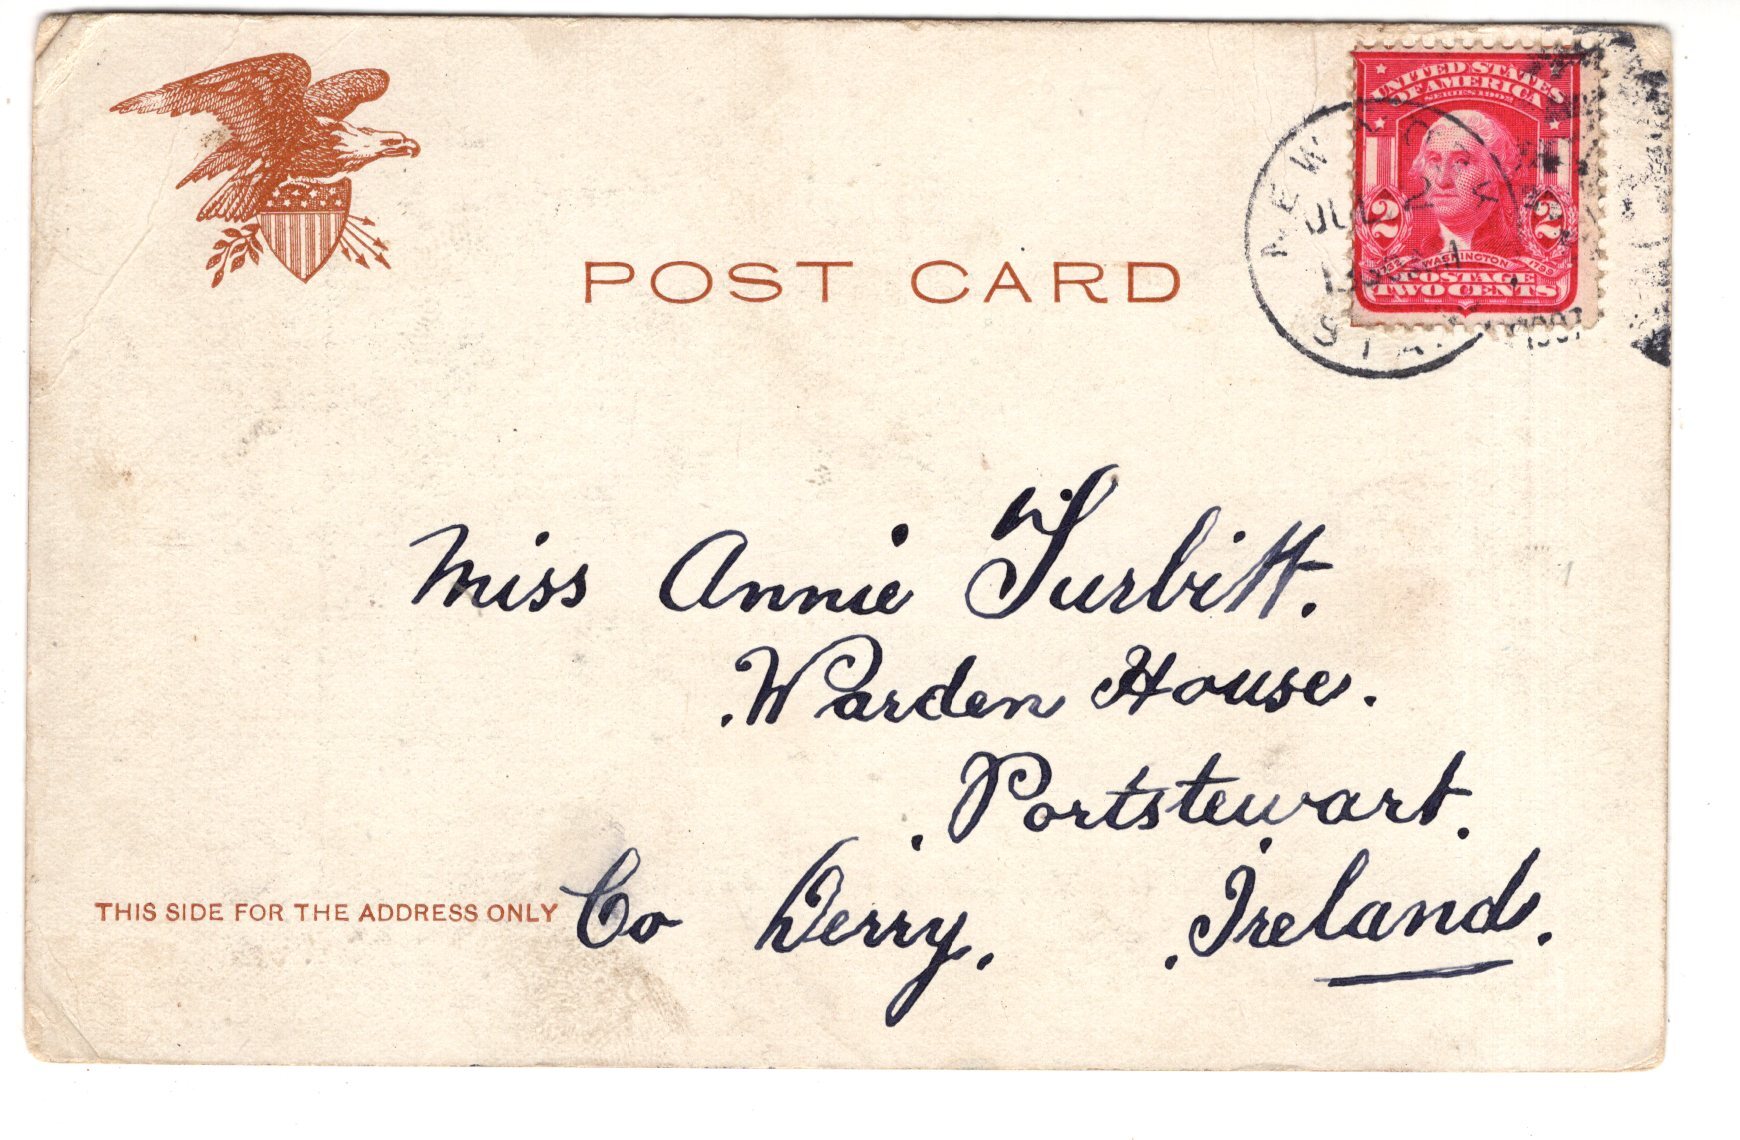 UNITED STATES
OF AMERICA
SERIES 1902
2 2
WASHINGTON
POSTAGE
TWO CENTS
NEW
JUL 2
STA.
1907
POST CARD
Miss Annie Turbitt.
Warden House.
Portstewart.
THIS SIDE FOR THE ADDRESS ONLY
Co Derry. Ireland.